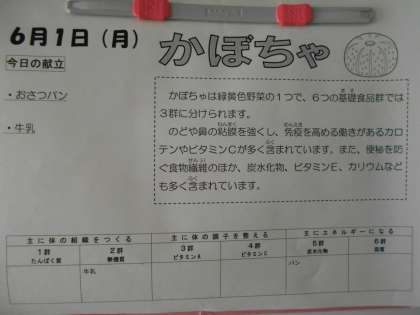 6月1日（月）
かぼちゃ
今日の献立
・おさつパン
・牛乳
かぼちゃは緑黄色野菜の1つで、6つの基礎食品群では
3群に分けられます。
のどや鼻の粘膜を強くし、免疫を高める働きがあるカロ
テンやビタミンCが多く含まれています。また、便秘を防
ぐ食物繊維のほか、炭水化物、ビタミンE、カリウムなど
も多く含まれています。
主に体の組織をつくる 主に体の調子を整える 主にエネルギーになる
1群 2群 3群 4群 5群 6群
たんぱく質 無機質 ビタミンA ビタミンC 炭水化物 脂質
牛乳 パン